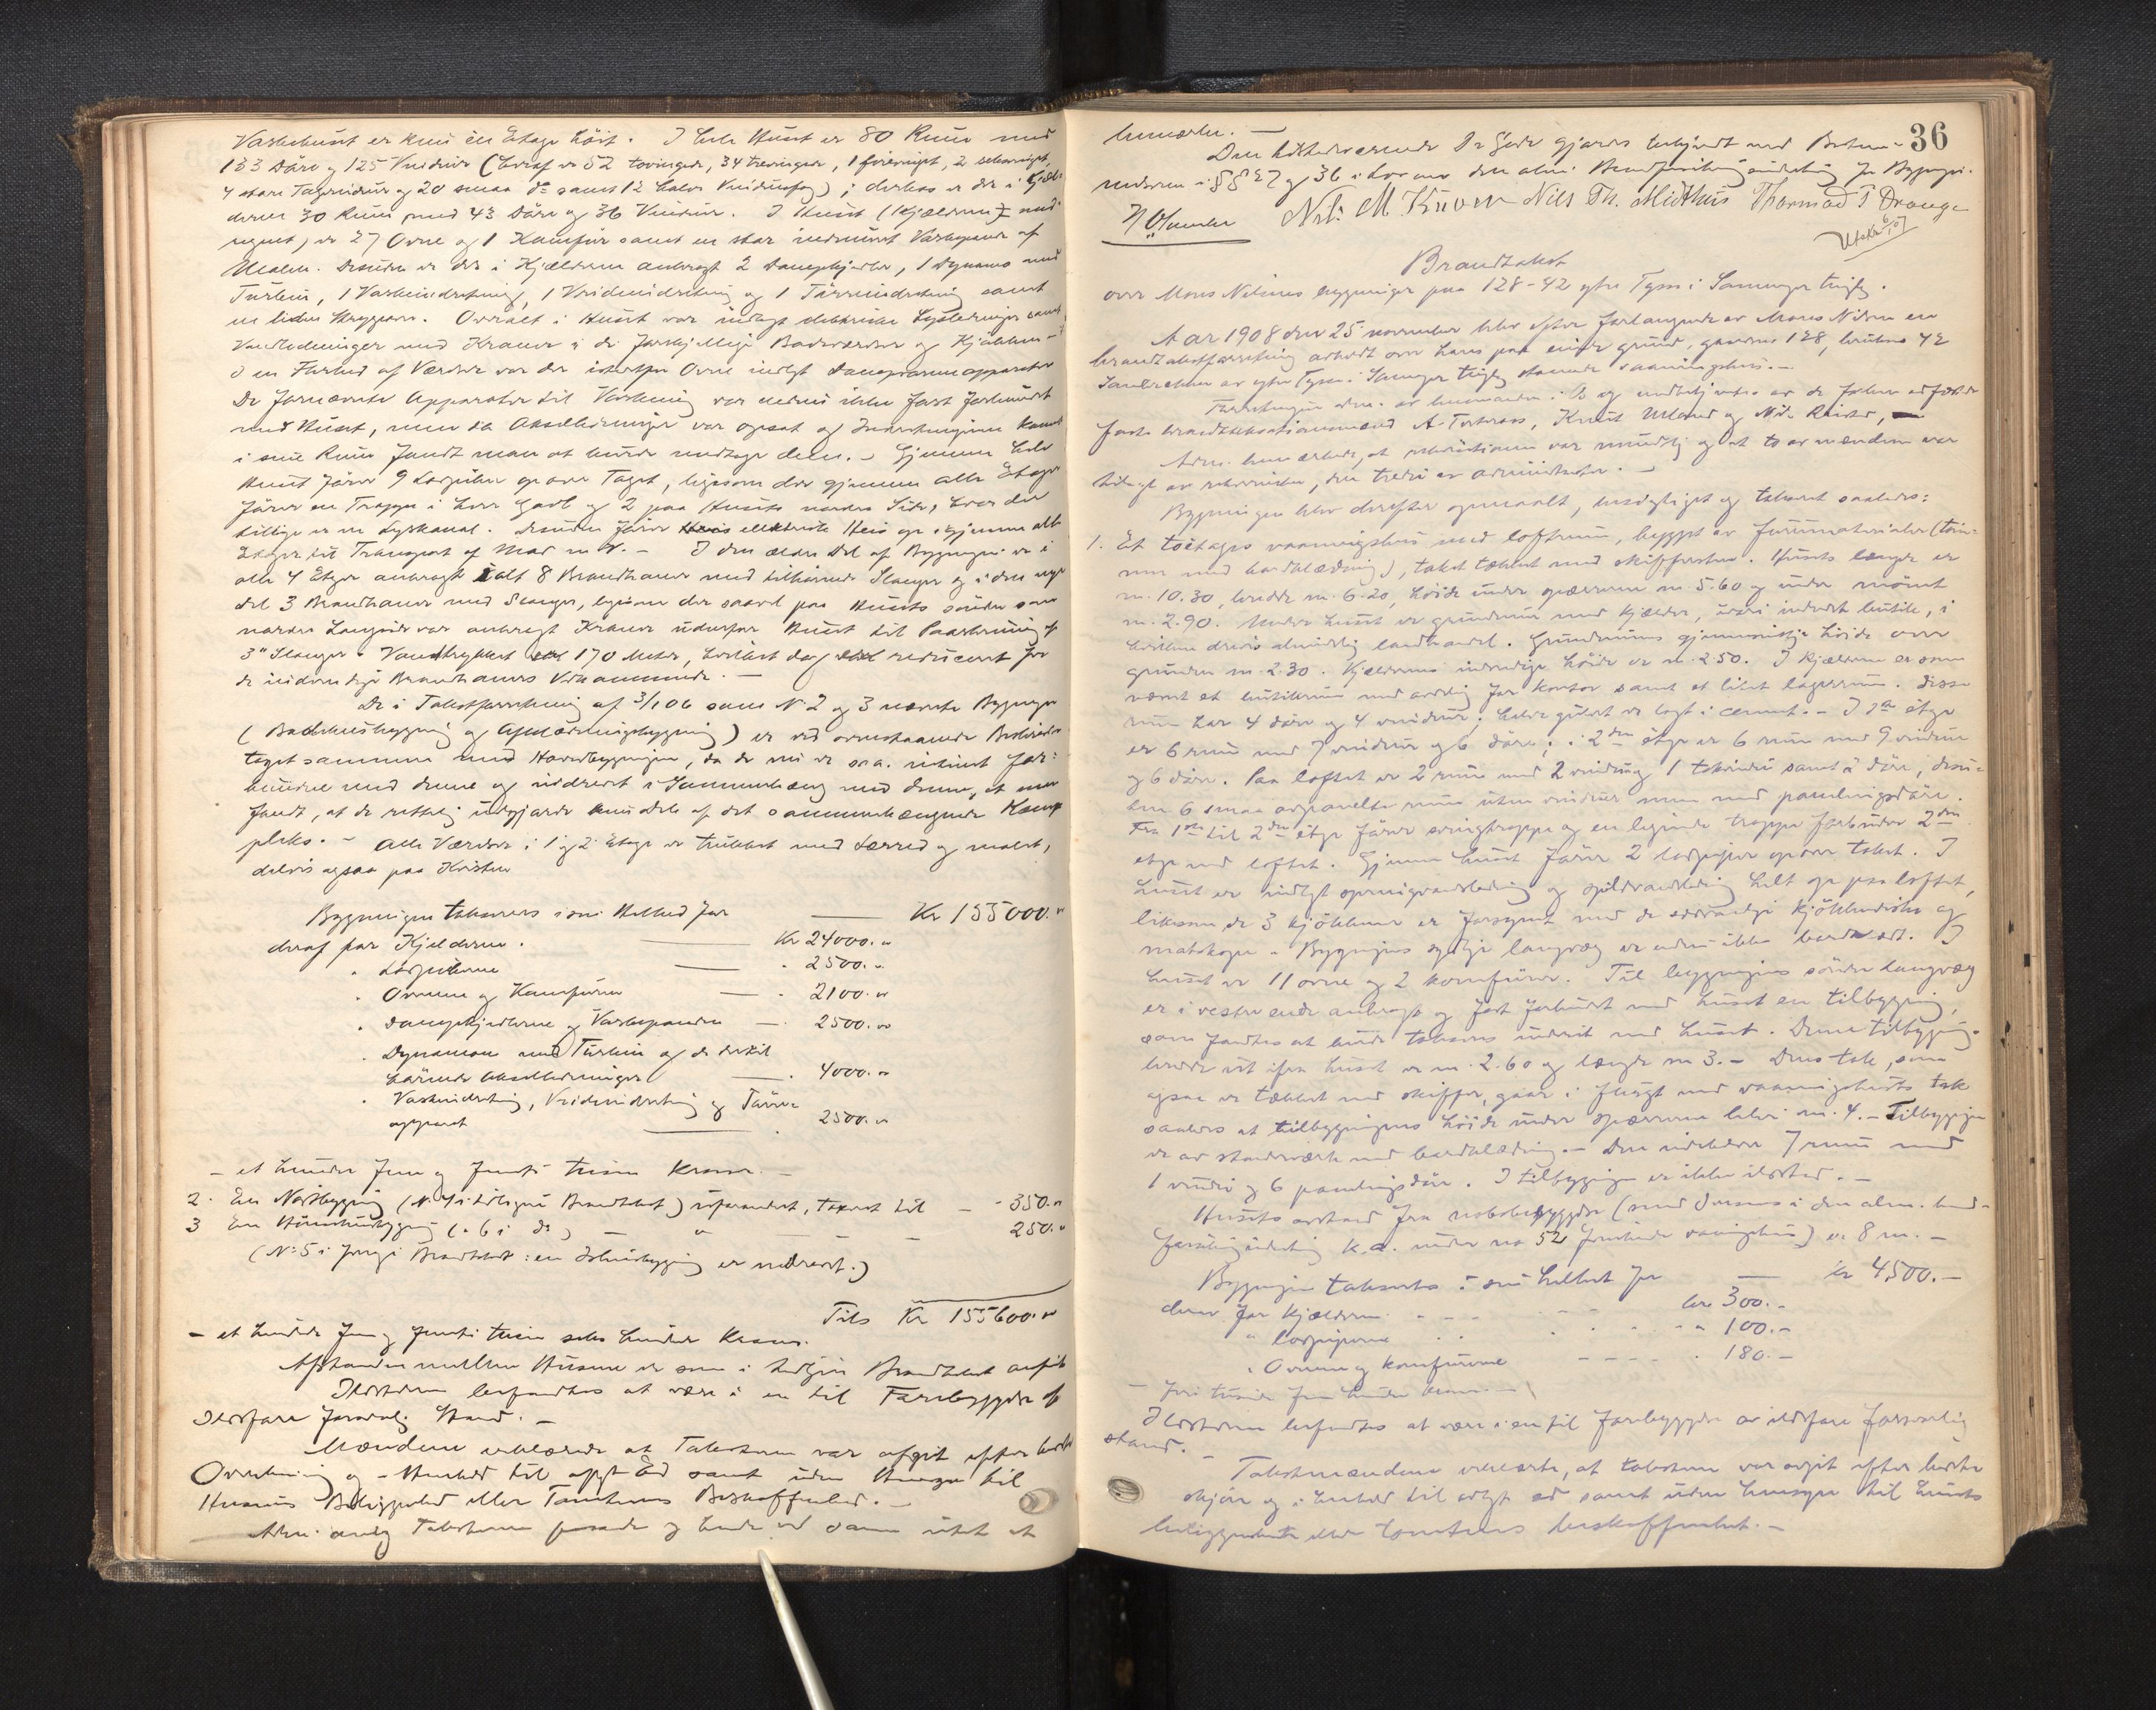 Vaskehuset er kun én Etage höit. I hele Huset er 80 Rum med
133 Döre og 125 Vinduer (hvoraf er 52 tovinger, 34 trevinger, 1 firevinget, 2
4 store Tagvinduer og 20 smaa do samt 12 halve Vinduesfag); desuden er der i Kjæl-
deren 30 Rum med 43 Döre og 36 Vinduer. I Huset (Kjælderen med-
regnet) er 27 Ovne og 1 Komfür samt en stor indmuret Vaskepande af
Desuden er der i Kjælderen anbragt 2 Dampkjedler, 1 Dynamo med
Turbin, 1 Vaskeindretning, 1 Vrideindretning og 1 Törreindretning samt
en liden Overalt i Huset var indlagt elektriske Lysledninger samt
Vandledninger med Kraner i de forskjellige Badeværelser og Kjökken -
I en Flerhed af Værelser var der istedetfor Ovne indlagt Dampvarmeapparater
De fornævnte Apparater til Vaskning var endnu ikke fast forbundet
med Huset, men da Akselledninger var opsat og Indretningerne kommet
i sine Rum fandt man at burde medtage dem. - Gjennem hele
Huset förer 9 Lorpiber op over Taget, ligesom der gjennem alle Etager
förer en Trappe i hver Gavl og 2 paa Husets nordre Side, hvor der
tillige er en Lyskanal. Desuden förer elektrisk Heis op igjennem alle
Etager til Transport af Mad m.v. - I den ældre Del af Bygningen er i
alle 4 Etager anbragt ialt 8 Brandhaner med tilhörende Slanger og i den nye
Del 3 Brandhaner med Slanger, ligesom der saavel paa Husets söndre som
nordre Langside var anbragt Kraner udenfor Huset til Paaskruning af
3" Slanger. Vandtrykket 170 Meter, hvilket dog reduceret for
de indvendige Brandhaners Vedkommende. -
De i Takstforretning af 3/1 06 som No 2 og 3 nævnte Bygninger
(Badehusbygning og Opvarmningsbygning) er ved ovenstaaende Beskrivelse
taget sammen med Hovedbygningen, da de nu er saa intimt for-
bundne med denne og indrettet i Sammenhæng med denne, at man
fandt, at de rettelig udgjorde kun Dele af det sammenhængende Kom-
pleks. - Alle Værelser i 1 og 2 Etage er trukket med Lerred og malet,
delvis ogsaa paa Kvisten
Bygningen taksers i sin Helhed for — Kr 155000.
deraf for Kjelderen. — Kr 24000.
" Lorpiberne — " 2500.
" Ovnene og Komfüren — " 2100.
" Dampkjedlerne og Vaskepanden — " 2500.
" Dynamoen med Turbin og de dertil
hörende Akselledninger — " 4000.
" Vaskeindretning, Vrideindretning og Törre-
apparat — " 2500.
- et hundre fem og femti tusen Kroner. -
2. En Nöstbygning (No 4 i tidligere Brandtakst) uforandret, Takseret til — - 350.
3 En Hönsehusbygning (" 6 i do) — " — 250.
(No 5 i forrige Brandtakst: en Ishusbygning er nedrevet.)
Tils Kr 155600.
- et hundrede fem og femti tusen seks hundrede Kroner.
Afstanden mellem Husene er som i tidligere Brandtakst anfört
Ildstederne befandtes at være i en til Forebyggelse af
Ildsfare forsvarlig Stand. -
Mændene erklærede at Taksten var afgit efter bedste
Overbevisning og i Henhold til aflagt Ed samt uden Hensyn til
Husenes Beliggenhed eller Tomternes Beskaffenhed. -
Adm. ansaa Taksterne passende og havde ved samme intet at
bemærke. -
36
Den tilstedeværende De Gede gjordes bekjendt med Bestem-
melserne i §§ 27 og 36 i Lov om den alm. Brandforsikringsindretning for Bygninger.
N Olsender Nils M Kuven Nils Th. Midthus Thormod T Drange
Utskr 6/1 07
Brandtakst
over Mons Nilsens bygninger paa 128-42 ytre Tysse i Samnanger tinglag.
Aar 1908 den 25 november blev efter forlangende av Mons Nilsen en
brandtakstforretning avholdt over hans paa eiende grund, gaardsno 128, bruksno 42
av ytre Tysse i Samnanger tinglag staaende vaaningshus. -
Forretningen adm. av lensmanden i Os og medbetjentes av de dertil
faste brandtakstmænd A. Tveteraas, Knut Utland og Nils Reistad,
Adm. bemærkede, at rekvisitionen var mundtlig og at to av mændene var
tilsagt av rekvirenten, den tredie av administrator. -
Bygningen blev derefter opmaalt, besigtiget og takseret saaledes:
1. Et toetages vaaningshus med loftrum, bygget av furumaterialer (töm-
mer med bordklædning), taket tækket med skiffersten. Husets længde er
m. 10.30, bredde m. 6.20, höide under spærrene m. 5.60 og under mönet
m. 2.90. Under huset er grundmur med kjælder, hvori indredet butik, i
hvilken drives almindelig landhandel. Grundmurens gjennemsnitlige höide over
grunden m. 2.30. Kjælderens indvendige höide er m. 2.50. I kjælderen er som
nævnt et butikrum med avdelig for kontor samt et litet lagerrum. Disse
rum har 4 döre og 4 vinduer; hele gulvet er lagt i cement. - I 1ste etage
er 6 rum med 7 vinduer og 6 döre; i 2den etage er 6 rum med 9 vinduer
og 6 döre. Paa loftet er 2 rum med 2 vinduer og 1 takvindu samt 2 döre, desu-
ten 6 smaa avpanelte rum uten vinduer men med panelingsdöre.
Fra 1ste til 2den etage förer svingtrappe og en lignende trappe forbinder 2den
etage med loftet. Gjennem huset förer 2 lorpiper op over taket. I
huset er indlagt springvandsledning og spildvandsledning helt op paa loftet,
likesom de 3 kjökkener er forsynet med de sedvanlige kjökkenbænke og
matskape. Bygningens sydlige langvæg er endnu ikke bordklædt. I
huset er 11 ovne og 2 komfürer. Til bygningens söndre langvæg
er i vestre ende anbragt og fast forbundet med huset en tilbygning,
som fandtes at burde takseres under ett med huset. Denne tilbygnings
bredde ut ifra huset er m. 2.60 og længde m 3. - Dens tak, som
ogsaa er tækket med skiffer, gaar i flugt med vaaningshusets tak
saaledes at tilbygningens höide under spærrene blir m. 4. - Tilbygningen
er av stenderverk med bordklædning. - Den indeholder 7 rum med
1 vindu og 6 panelingsdöre. I tilbygningen er ikke ildsted. -
Husets avstand fra nabobebyggelse (med i den alm. brand-
forsikringsindretning k.a. under no 52 forsikrede vaaningshus) er 8 m. -
Bygningen taksertes i sin helhet for — kr 4500.-
derav for kjælderen. - - - kr. 300.-
" lorpiperne - - " 100.-
" Ovnene og komfürerne - - - - " 180.-
- fire tusinde fem hundre kroner -
Ildstederne befandtes at være i en til forebyggelse av ildsfare forsvarlig
stand. -
Takstmændene erklærte, at taksten var avgit efter bedste
skjön og i henhold til avlagt ed samt uten hensyn til husets
beliggenhet eller tomtens beskaffenhet. -